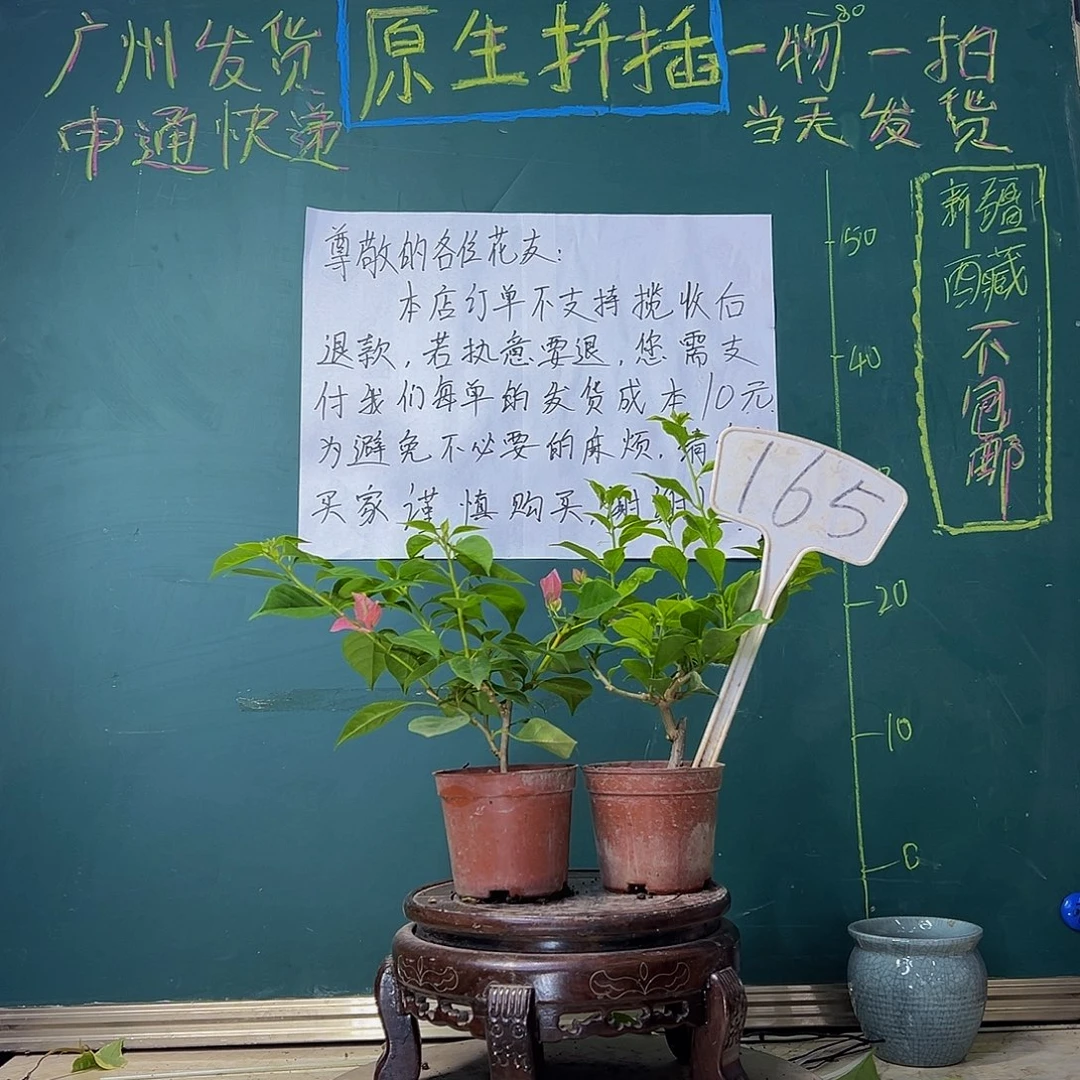 广州发货
申通快递
原生扦插
一物一拍
80
当天发货
尊敬的各位花友:
本店订单不支持揽收后
退款,若执意要退,您需支
付我们每单的发货成本10元
为避免不必要的麻烦.请
买家谨慎购买 谢谢
165
50
40
20
10
0
新疆
西藏
不包邮